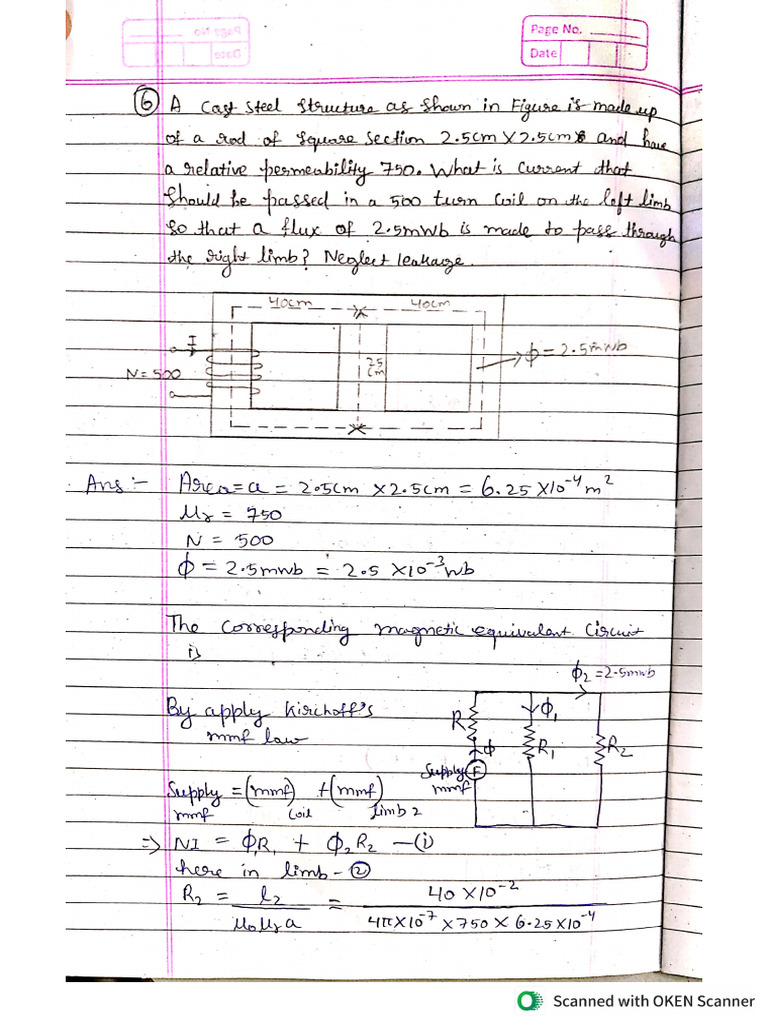 Page No.
Date
6 A Cast Steel Structure as shown in Figure is made up
of a rod of square section 2.5cm X 2.5cm and have
a relative permeability 750. What is current that
should be passed in a 500 turn coil on the left limb
so that a flux of 2.5mwb is made to pass through
the right limb? Neglect leakage.
40cm 40cm
I
N = 500
25
cm
ϕ = 2.5mwb
Ans :- Area = a = 2.5cm X 2.5cm = 6.25 X 10⁻⁴ m²
μr = 750
N = 500
ϕ = 2.5mwb = 2.5 X 10⁻³ wb
The Corresponding magnetic equivalent Circuit
is
ϕ₂ = 2.5mwb
By apply Kirchoff's
mmf law
R ϕ ϕ₁ R₁ R₂
Supply F
mmf
Supply = (mmf) + (mmf)
mmf coil limb 2
=> NI = ϕR₁ + ϕ₂R₂ —(i)
here in limb - ②
R₂ = l₂ / μ₀μra = 40 X 10⁻² / 4π X 10⁻⁷ X 750 X 6.25 X 10⁻⁴
Scanned with OKEN Scanner